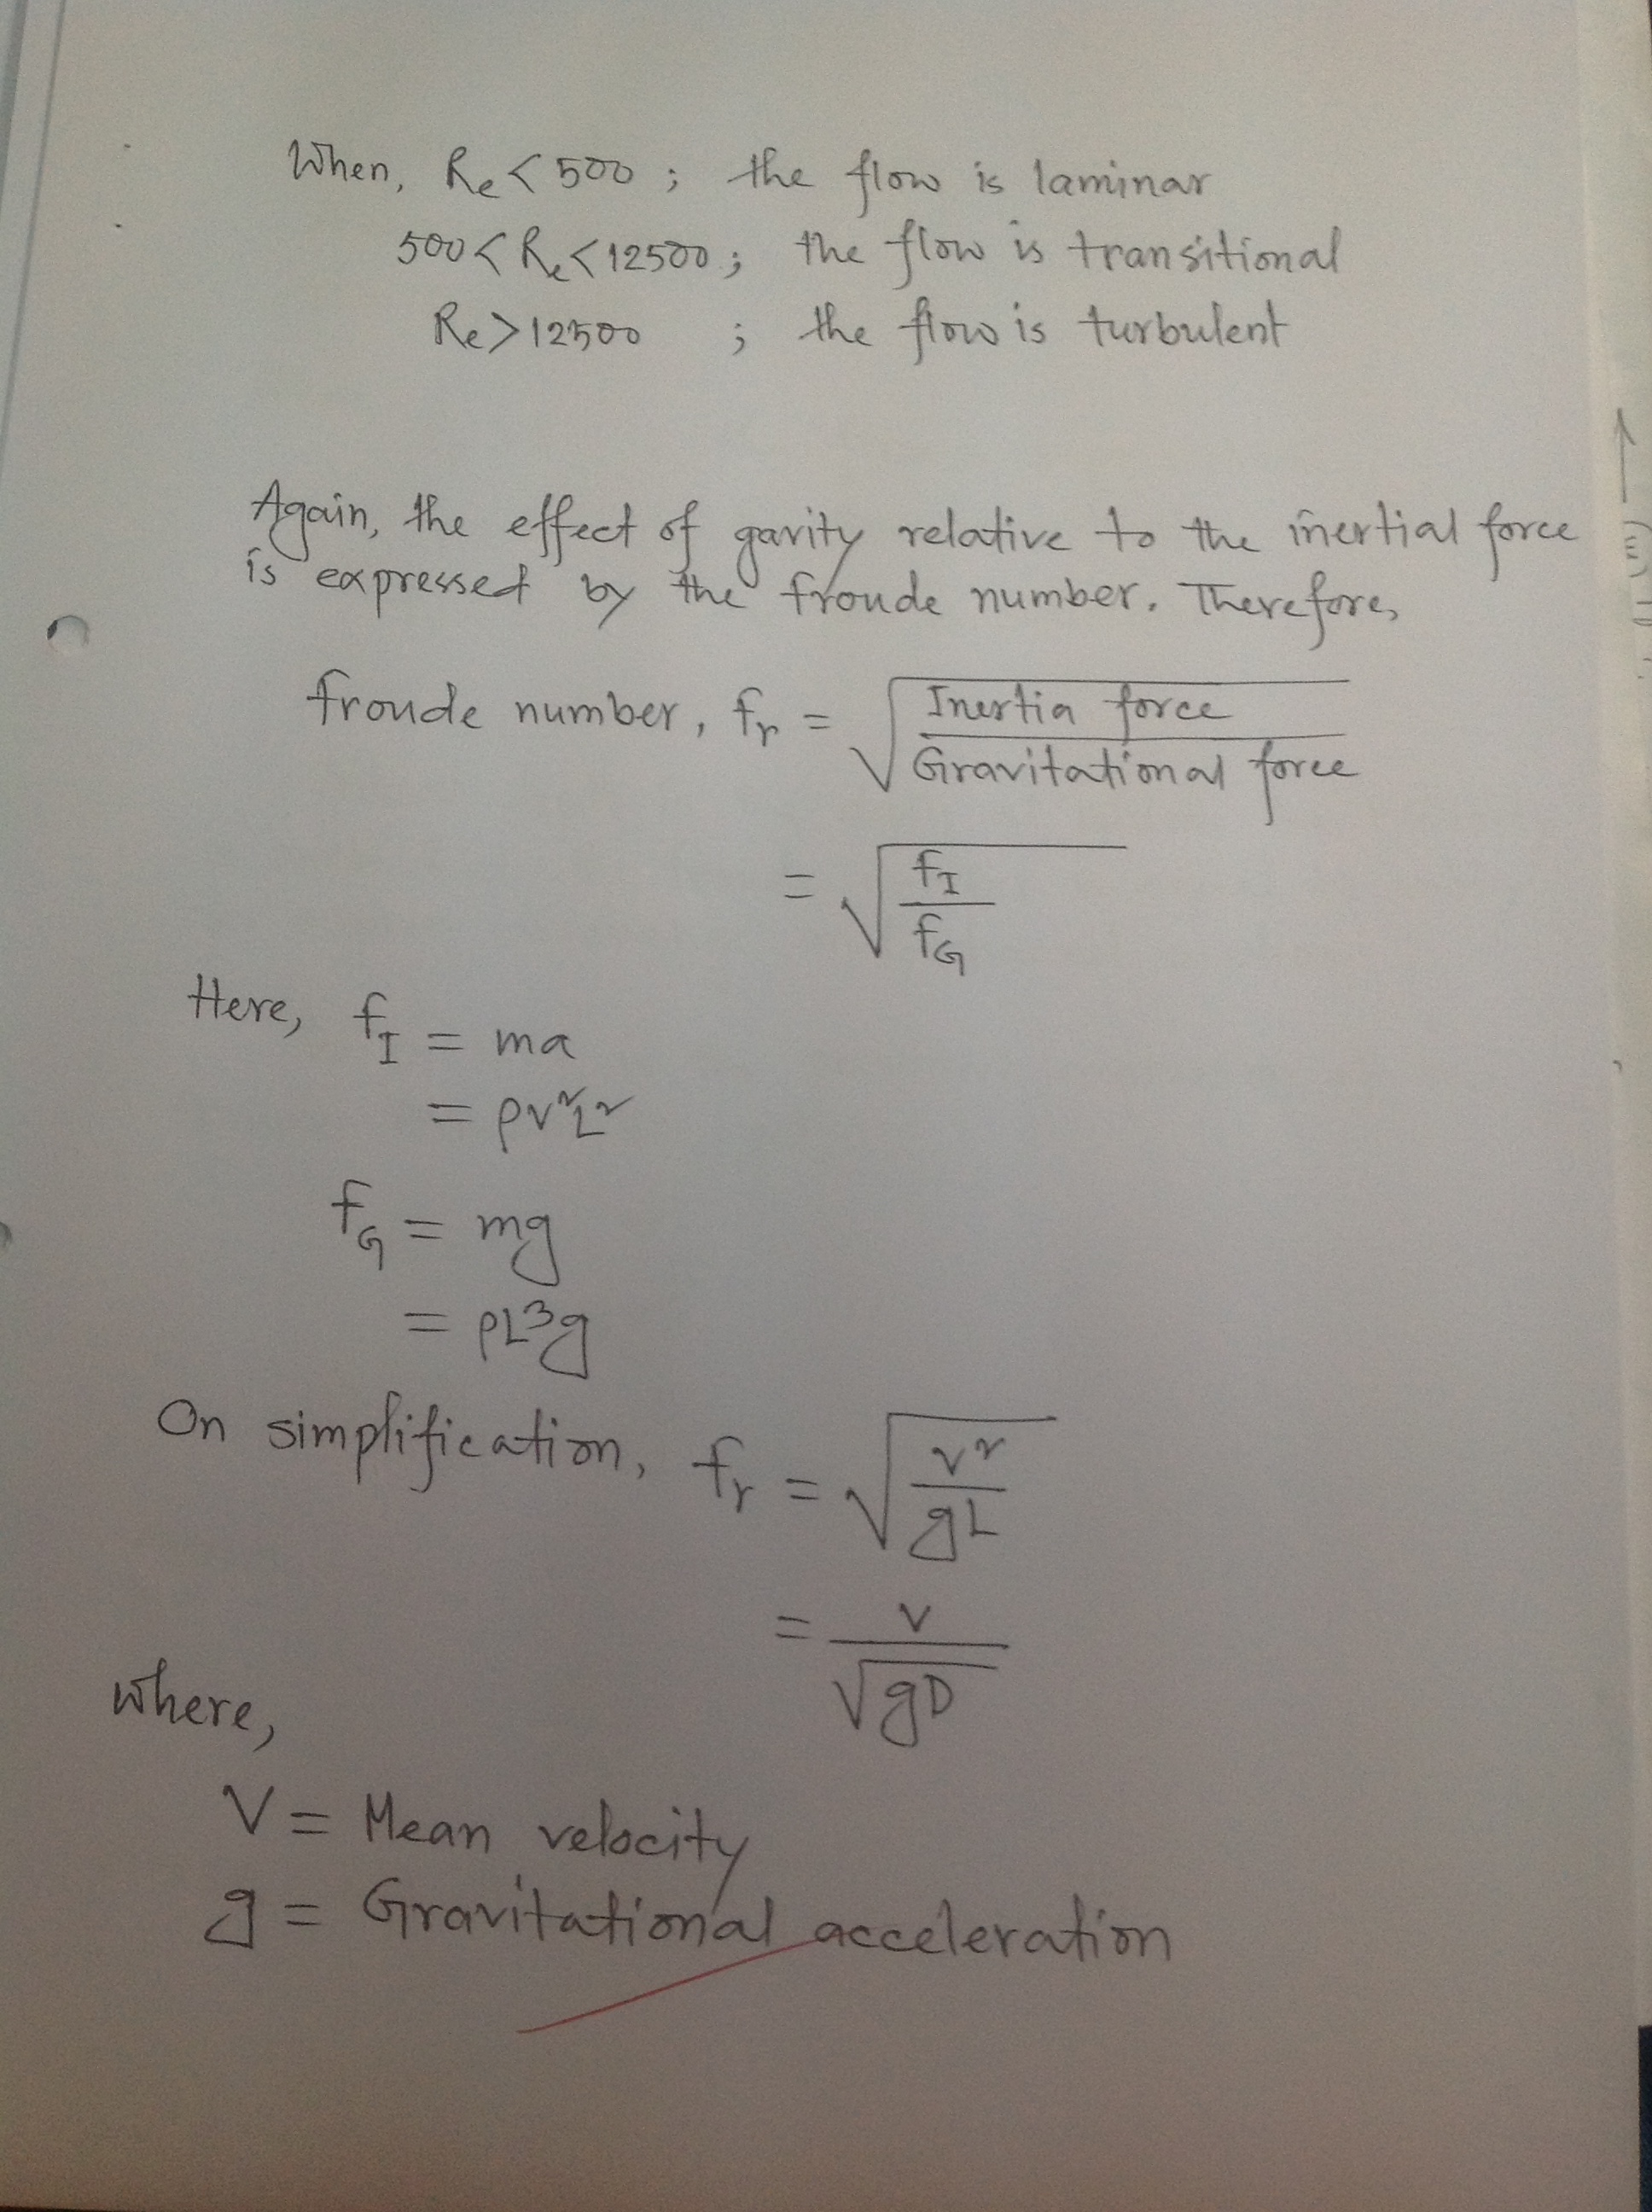 When, Re < 500 ; the flow is laminar
500 < Re < 12500 ; the flow is transitional
Re > 12500 ; the flow is turbulent
Again, the effect of garity relative to the inertial force
is expressed by the froude number. Therefore,
froude number, fr = √(Inertia force / Gravitational force)
= √(fI / fG)
Here, fI = ma
= ρv²L²
fG = mg
= ρL³g
On simplification, fr = √(v² / gL)
= v / √gD
where,
V = Mean velocity
g = Gravitational acceleration